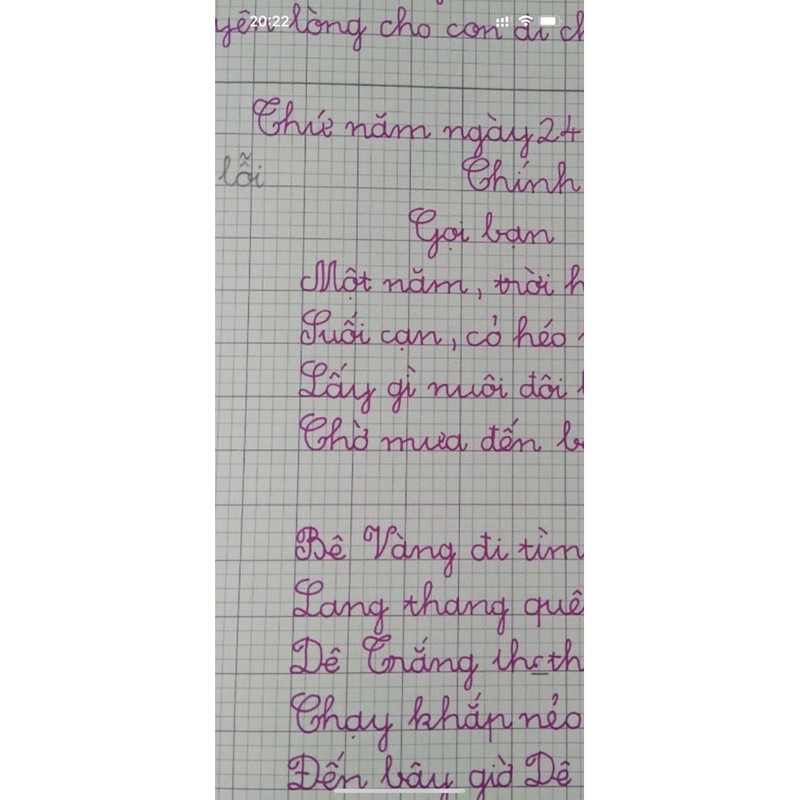 20:22
yên lòng cho con đi ch
Thứ năm ngày 24
lỗi
Chính
Gọi bạn
Một năm, trời h
Suối cạn, cỏ héo
Lấy gì nuôi đôi
Chờ mưa đến b
Bê Vàng đi tìm
Lang thang quê
Dê Trắng th
Chạy khắp nẻo
Đến bây giờ Dê